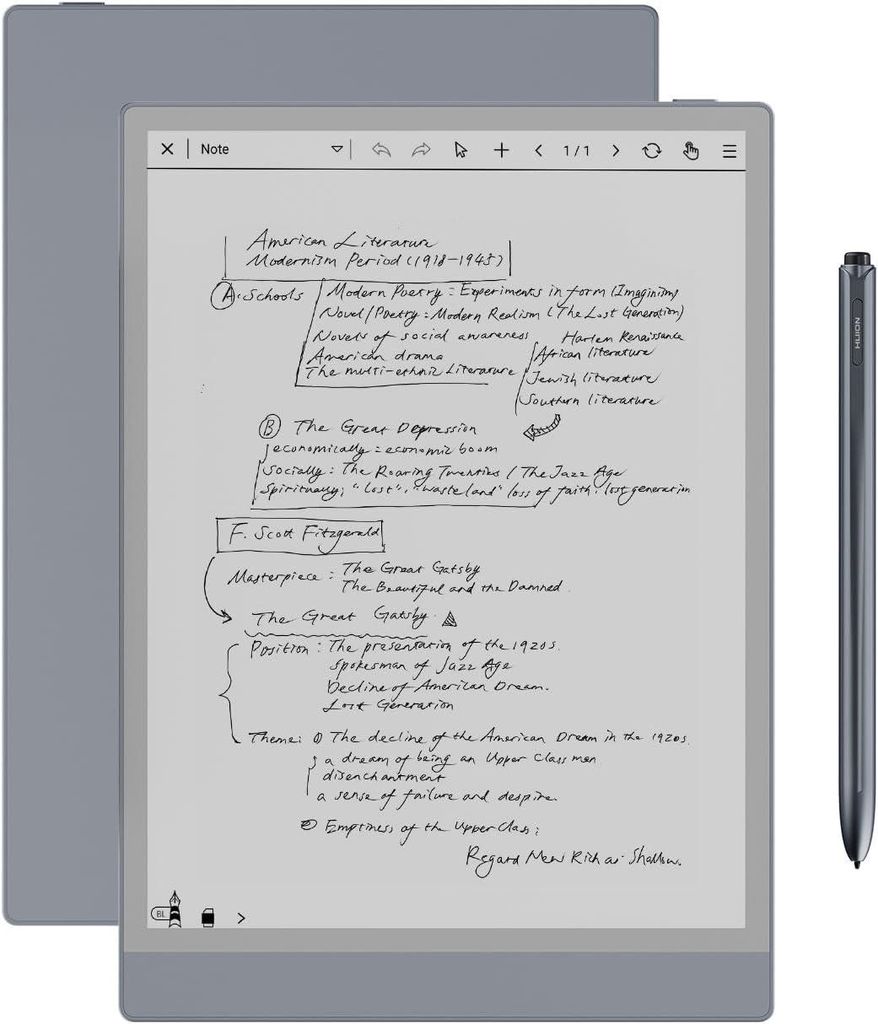 Note
1/1
American Literature
Modernism Period (1918-1945)
A. Schools
Modern Poetry: Experiments in form (Imaginism)
Novel/Poetry: Modern Realism (The Lost Generation)
Novels of social awareness
American drama
The multi-ethnic Literature
Harlem Renaissance
African literature
Jewish literature
Southern literature
B The Great Depression
economically: economic boom
Socially: The Roaring Twenties / The Jazz Age
Spiritually: "lost", "wasteland" loss of faith, lost generation
F. Scott Fitzgerald
Masterpiece: The Great Gatsby
The Beautiful and the Damned
The Great Gatsby.
Position: The presentation of the 1920s.
spokesman of Jazz Age
Decline of American Dream.
Lost Generation
Theme: ① The decline of the American Dream in the 1920s.
a dream of being an Upper Class man
disenchantment
a sense of failure and despire.
② Emptiness of the Upper Class:
Regard New Rich as Shallow.
BL
HUION